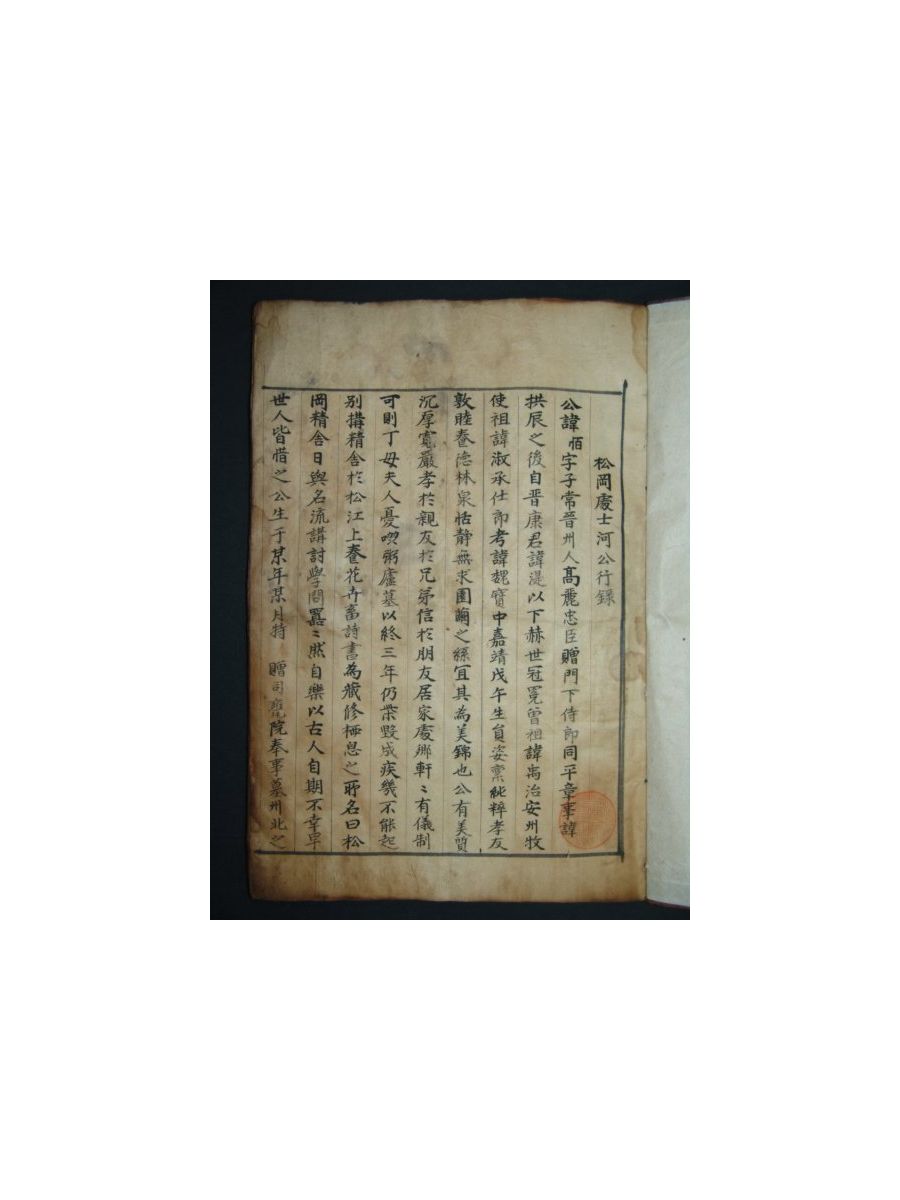 松岡處士河公行錄
公諱恒字子常晉州人髙麗忠臣贈門下侍郎同平章事諱
拱辰之後自晋康君諱湜以下赫世冠冕曾祖諱禹治安州牧
使祖諱淑承仕郎考諱魏寶中嘉靖戊午生員姿稟純粹孝友
敦睦養德林泉恬静無求園繭之絲宜其為美錦也公有美質
沉厚寬嚴孝於親友於兄弟信於朋友居家處鄉軒〻有儀制
可則丁母夫人憂啜粥廬墓以終三年仍柴毀成疾幾不能起
別搆精舍於松江上養花卉畜詩書為藏修極息之所名曰松
岡精舍日與名流講討學問囂〻然自樂以古人自期不幸早
世人皆惜之公生于某年某月特 贈司甕院奉事墓州北之